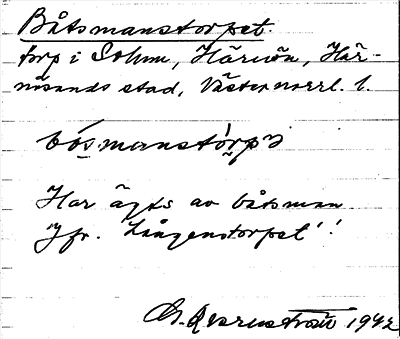 Båtsmanstorpet.
torp i Solum, Härnön, Här-
nösands stad, Västernorrl. l.
bósmanstórpə
Har ägts av båtsman
Jfr. Långenstorpet!
1942